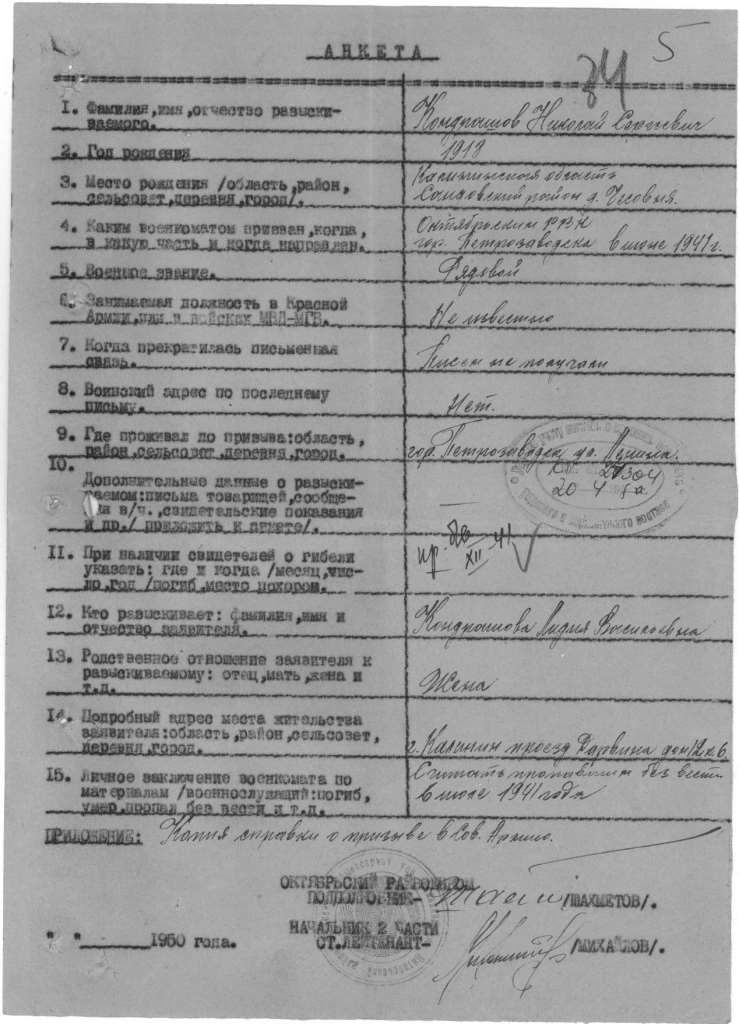 5
АНКЕТА
1. Фамилия, имя, отчество разыски-
ваемого.
Кондрашов Николай Сергеевич
2. Год рождения
1918
3. Место рождения /область, район,
сельсовет, деревня, город/.
Калининская область
Сандовский район д.
4. Каким военкоматом призван, когда,
в какую часть и когда направлен.
Октябрьским РВК
гор. Петрозаводска в июне 1941 г.
5. Военное звание.
Рядовой
6. Занимаемая должность в Красной
Армии, или в войсках МВД-МГБ.
Не известно
7. Когда прекратилась письменная
связь.
Писем не получали
8. Воинский адрес по последнему
письму.
Нет.
9. Где проживал до призыва: область,
район, сельсовет, деревня, город.
гор. Петрозаводск ул.
27304
20 4
10.
Дополнительные данные о разыски-
ваемом: письма товарищей, сообще-
ния в/ч., свидетельские показания
и пр./ приложить к анкете/.
—
пр. XII 41
11. При наличии свидетелей о гибели
указать: где и когда /месяц, чис-
ло, год /погиб, место похорон.
12. Кто разыскивает: фамилия, имя и
отчество заявителя.
Кондрашова Лидия Васильевна
13. Родственное отношение заявителя к
разыскиваемому: отец, мать, жена и
т.д.
Жена
14. Подробный адрес места жительства
заявителя: область, район, сельсовет,
деревня, город.
г. Калинин проезд Дарвина дом 12 к 6
15. Личное заключение военкомата по
материалам /военнослужащий: погиб,
умер, пропал без вести и т.д.
Считать пропавшим без вести
в июле 1941 года
ПРИЛОЖЕНИЕ: Копия справки о призыве в Сов. Армию.
ОКТЯБРЬСКИЙ РАЙВОЕНКОМ
ПОДПОЛКОВНИК- /ШАХМЕТОВ/.
НАЧАЛЬНИК 2 ЧАСТИ
СТ.ЛЕЙТЕНАНТ- /МИХАЙЛОВ/.
" " 1950 года.